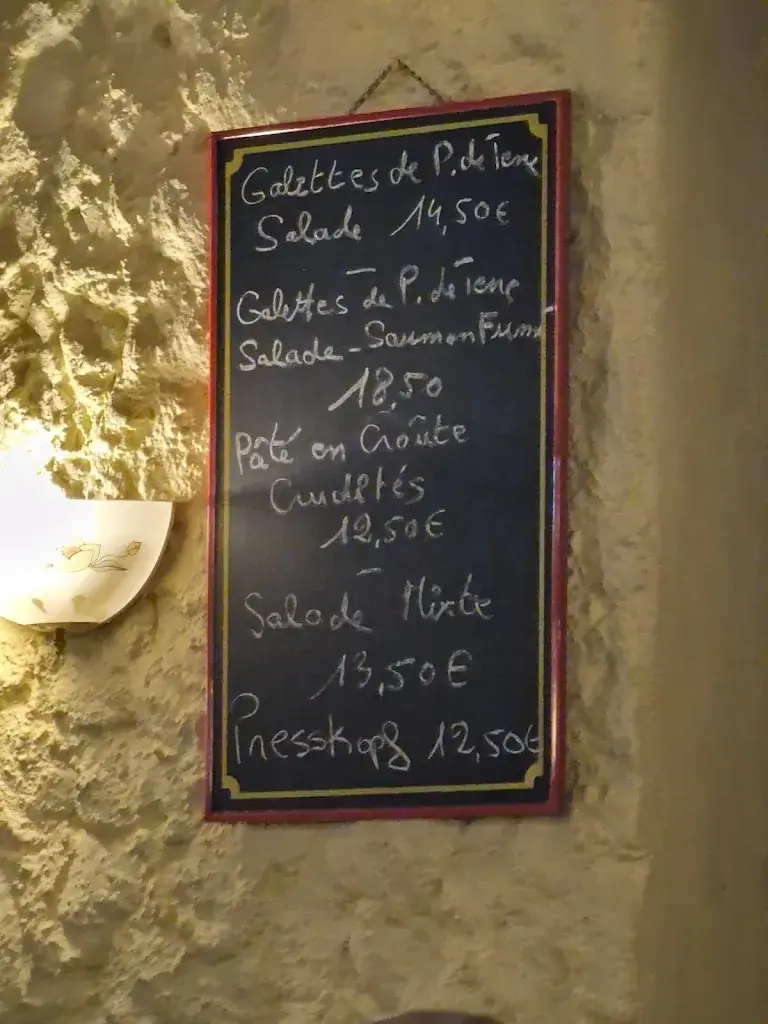 Galettes de P. de Terre
Salade 14,50€
Galettes de P. de Terre
Salade - Saumon Fumé
18,50
Pâté en Croûte
Crudités
12,50€
Salade Mixte
13,50€
Presskopf 12,50€